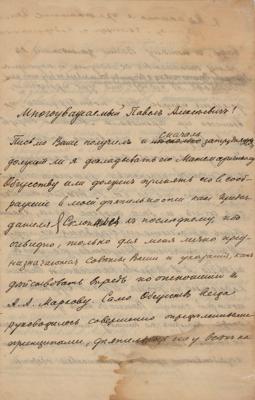 Многоуважаемый Павел Алексеевич!
Письмо Ваше получил и сначала
должен ли я докладывать его Математическому
Обществу или должен принять его в сооб-
ражение в моей деятельности как предсе-
дателя. к последнему, что
очевидно, только для меня лично пред-
назначался советы Ваши и указания, как
действовать впредь по отношению к
А. А. Маркову. Само Общество всегда
руководилось совершенно определёнными
принципами, у всех на